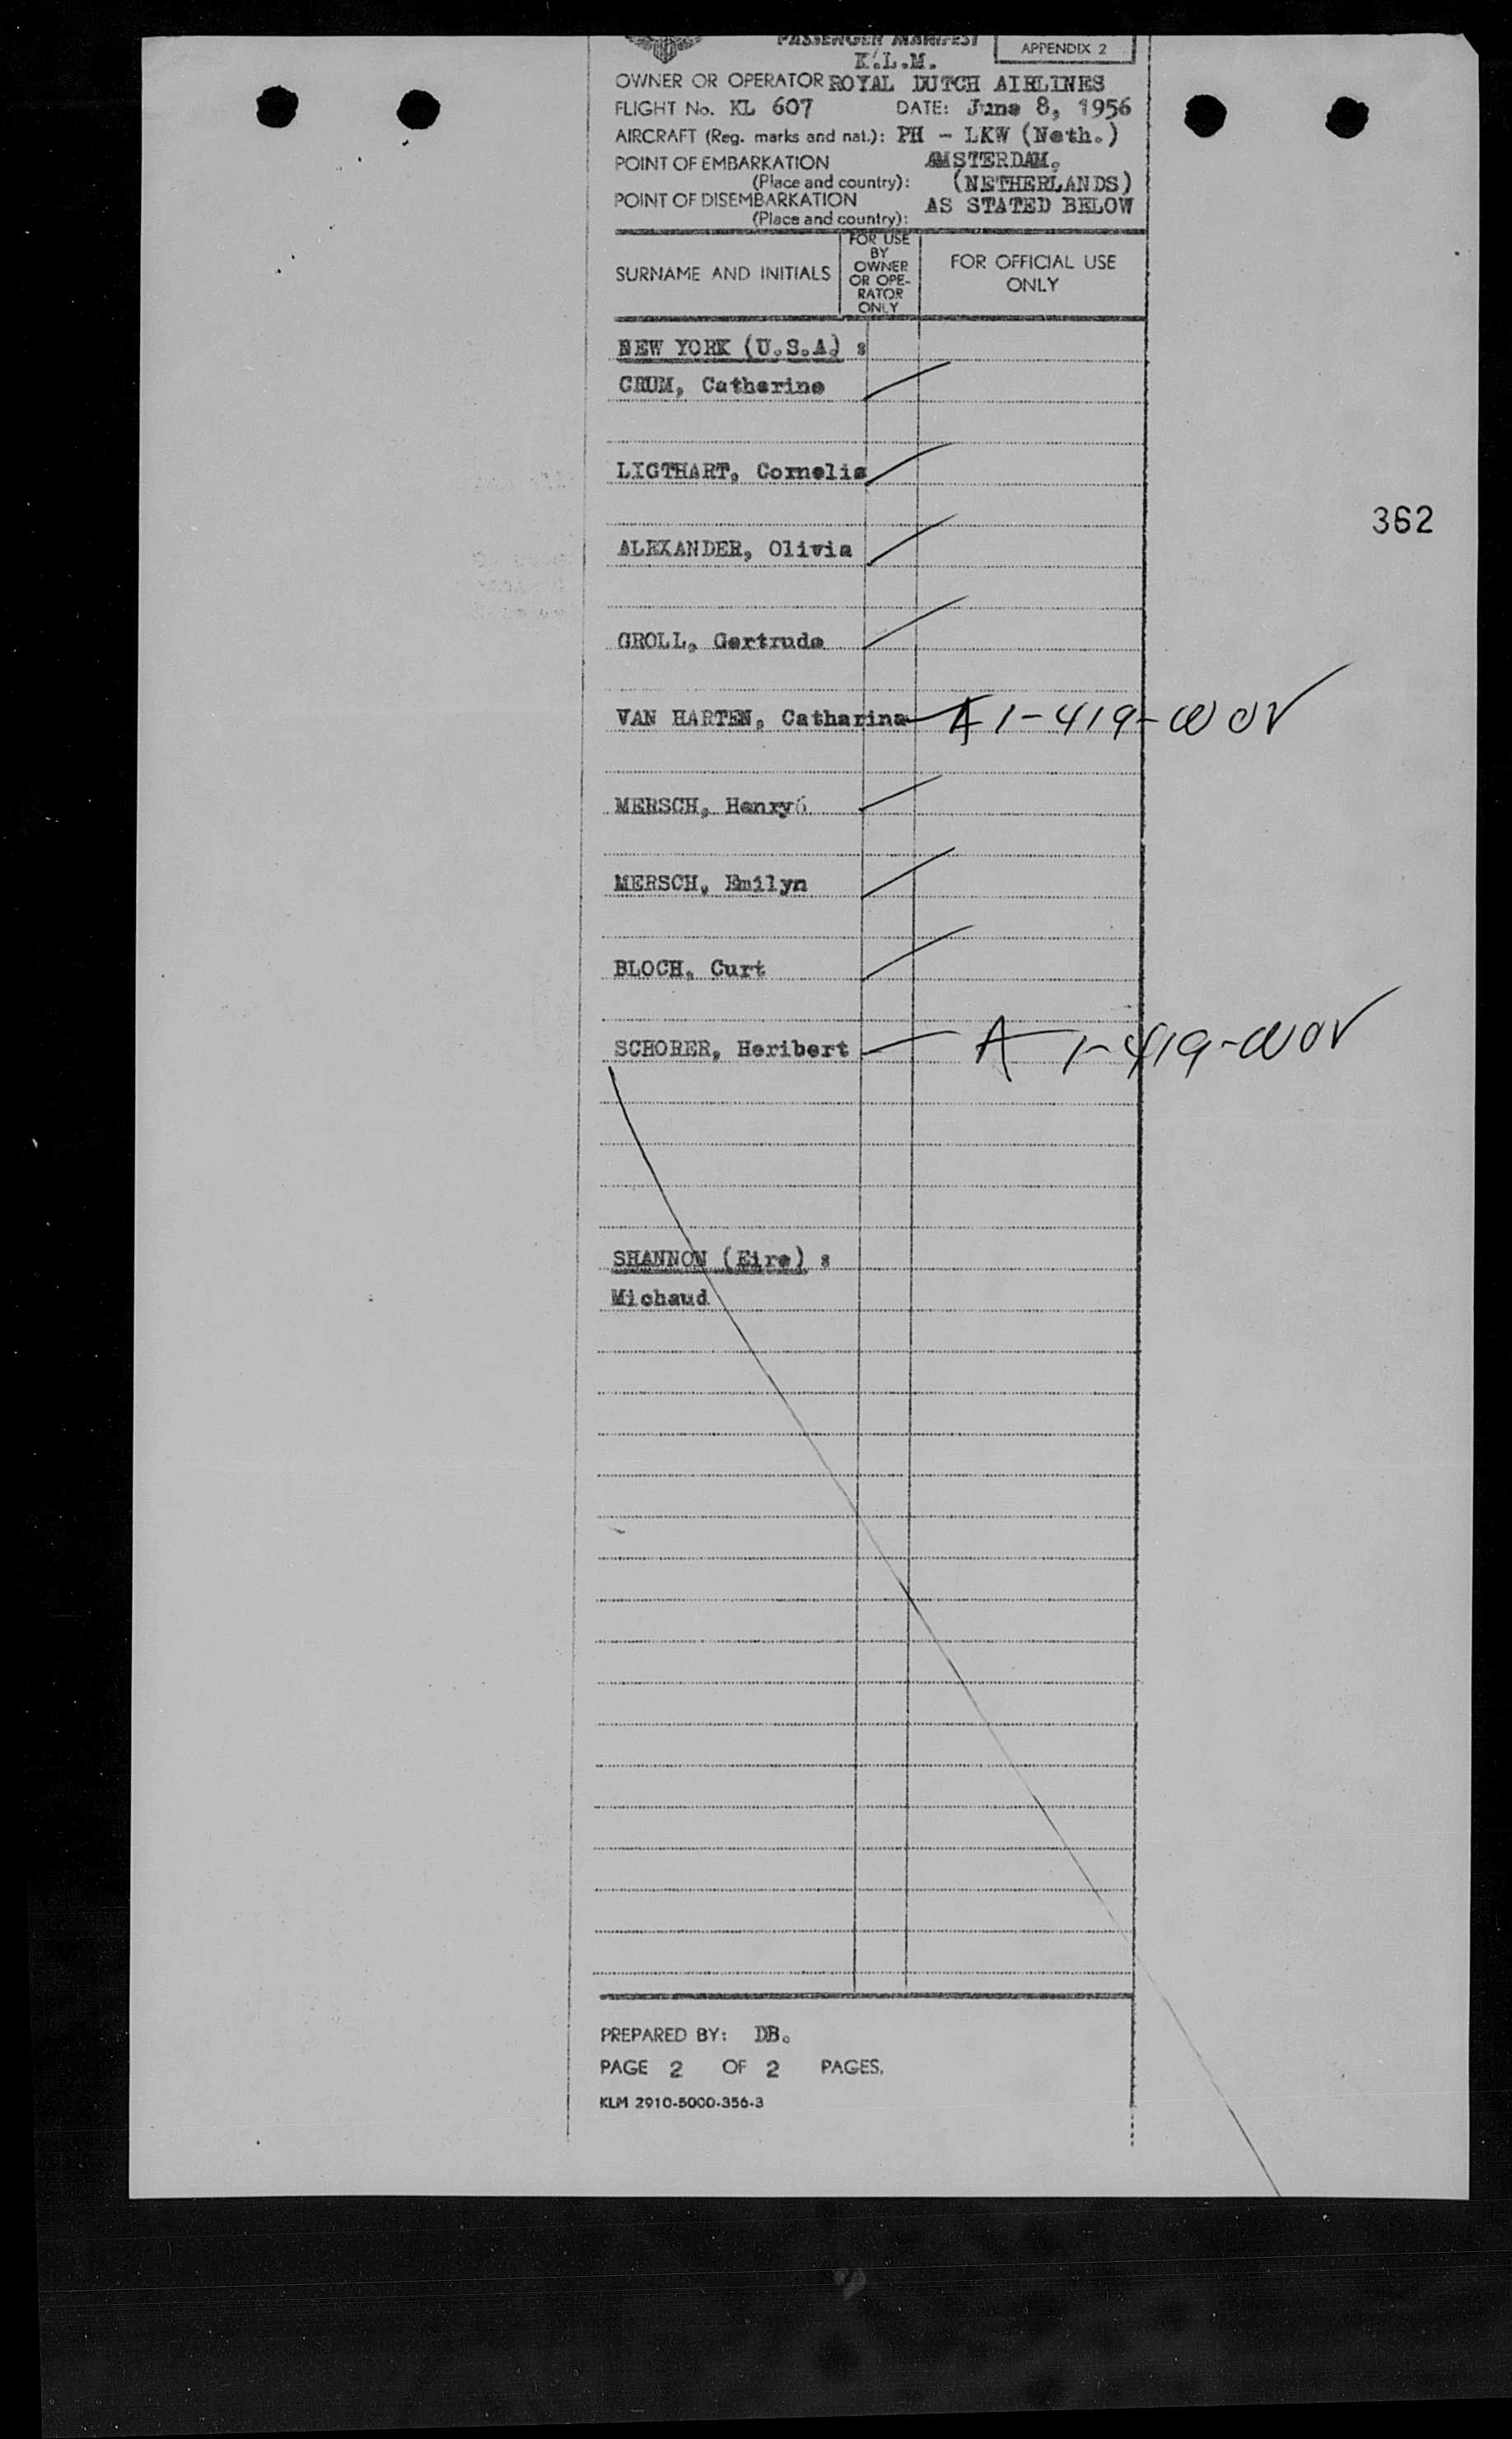 PASSENGER MANIFEST
APPENDIX 2
K.L.M.
OWNER OR OPERATOR ROYAL DUTCH AIRLINES
FLIGHT No. KL 607 DATE: June 8, 1956
AIRCRAFT (Reg. marks and nat.): PH - LKW (Neth.)
POINT OF EMBARKATION AMSTERDAM,
(Place and country): (NETHERLANDS)
POINT OF DISEMBARKATION AS STATED BELOW
(Place and country):
SURNAME AND INITIALS
FOR USE
BY
OWNER
OR OPE-
RATOR
ONLY
FOR OFFICIAL USE
ONLY
NEW YORK (U.S.A.) :
CRUM, Catherine
LIGTHART, Cornelis
362
ALEXANDER, Olivia
GROLL, Gertrude
VAN HARTEN, Catharina A 1-419-WOV
MERSCH, Henry
MERSCH, Emilyn
BLOCH, Curt
SCHORER, Heribert A 1-419-WOV
SHANNON (Eire) :
Michaud
PREPARED BY: DB.
PAGE 2 OF 2 PAGES.
KLM 2910-5000-356-3